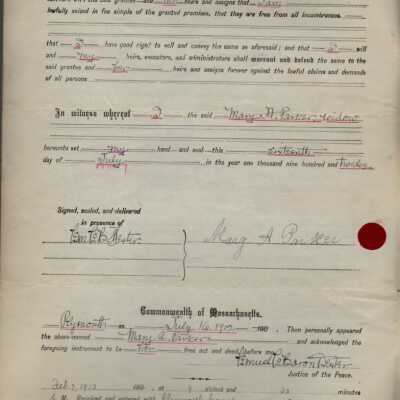 lawfully seized in fee simple of the granted premises, that they are free from all incumbrances.
that I have good right to sell and convey the same as aforesaid; and that I will
and my heirs, executors, and administrators shall warrant and defend the same to the
said grantee and heirs and assigns forever against the lawful claims and demands
of all persons
In witness whereof I the said Mary A. Parker widow
hereunto set my hand and seal this sixteenth
day of July in the year one thousand nine hundred and
Signed, sealed, and delivered
in presence of
Mary A Parker
Commonwealth of Massachusetts.
Plymouth ss July 16 190 Then personally appeared
the above-named Mary A. Parker and acknowledged the
foregoing instrument to be free act and deed, before me
Justice of the Peace.
Feb 7, 1913 190 at o'clock and minutes
M. Received and entered with Plymouth